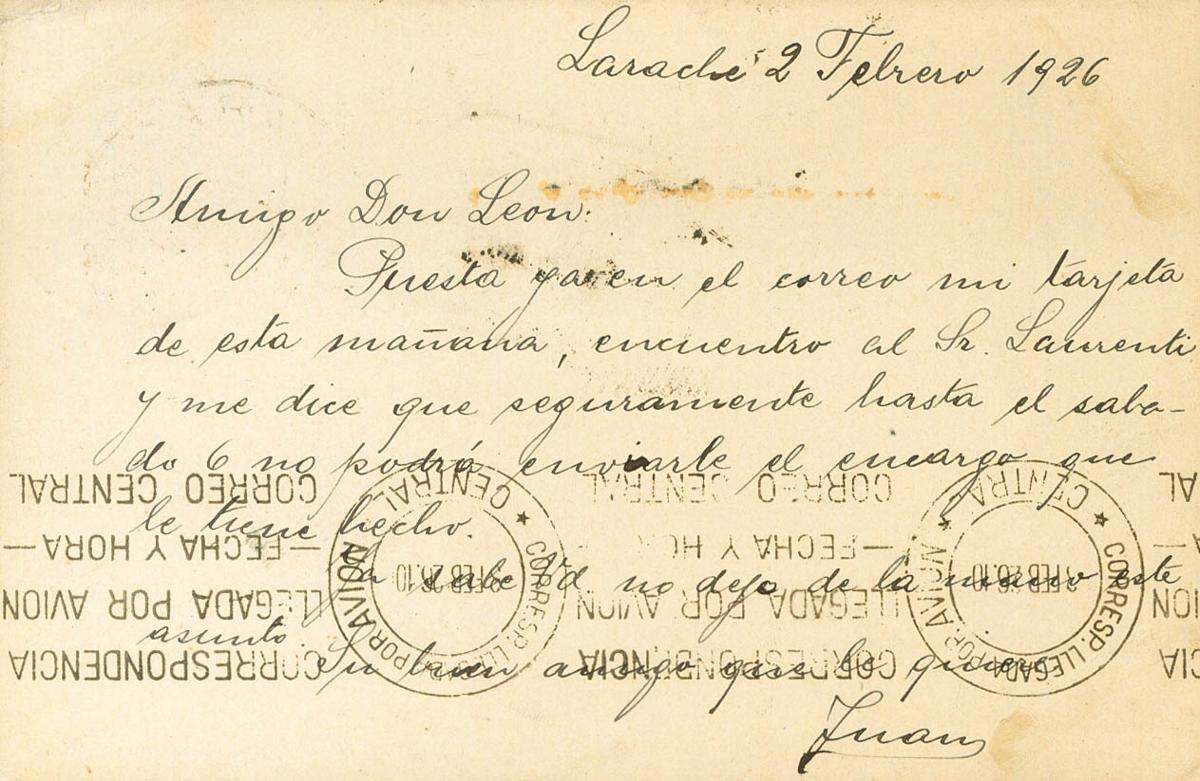 Larache 2 Febrero 1926
Amigo Don Leon:
Puesta ya en el correo mi tarjeta
de esta mañana, encuentro al Sr. Laurenti
y me dice que seguramente hasta el saba-
do 6 no podrá enviarle el encargo que
le tiene hecho.
Ya sabe Vd no dejo de la mano este
asunto.
Su buen amigo que le quiere
Juan
CORREO CENTRAL
CORREO CENTRAL
—FECHA Y HORA—
—FECHA Y HOR
LLEGADA POR AVION
LLEGADA POR AVION
CORRESPONDENCIA
CORRESPONDENCIA
CORRESP. LLEGADA POR AVION CENTRAL
3 FEB 26.10
CORRESP. LLEGADA POR AVION CENTRAL
3 FEB 26.10